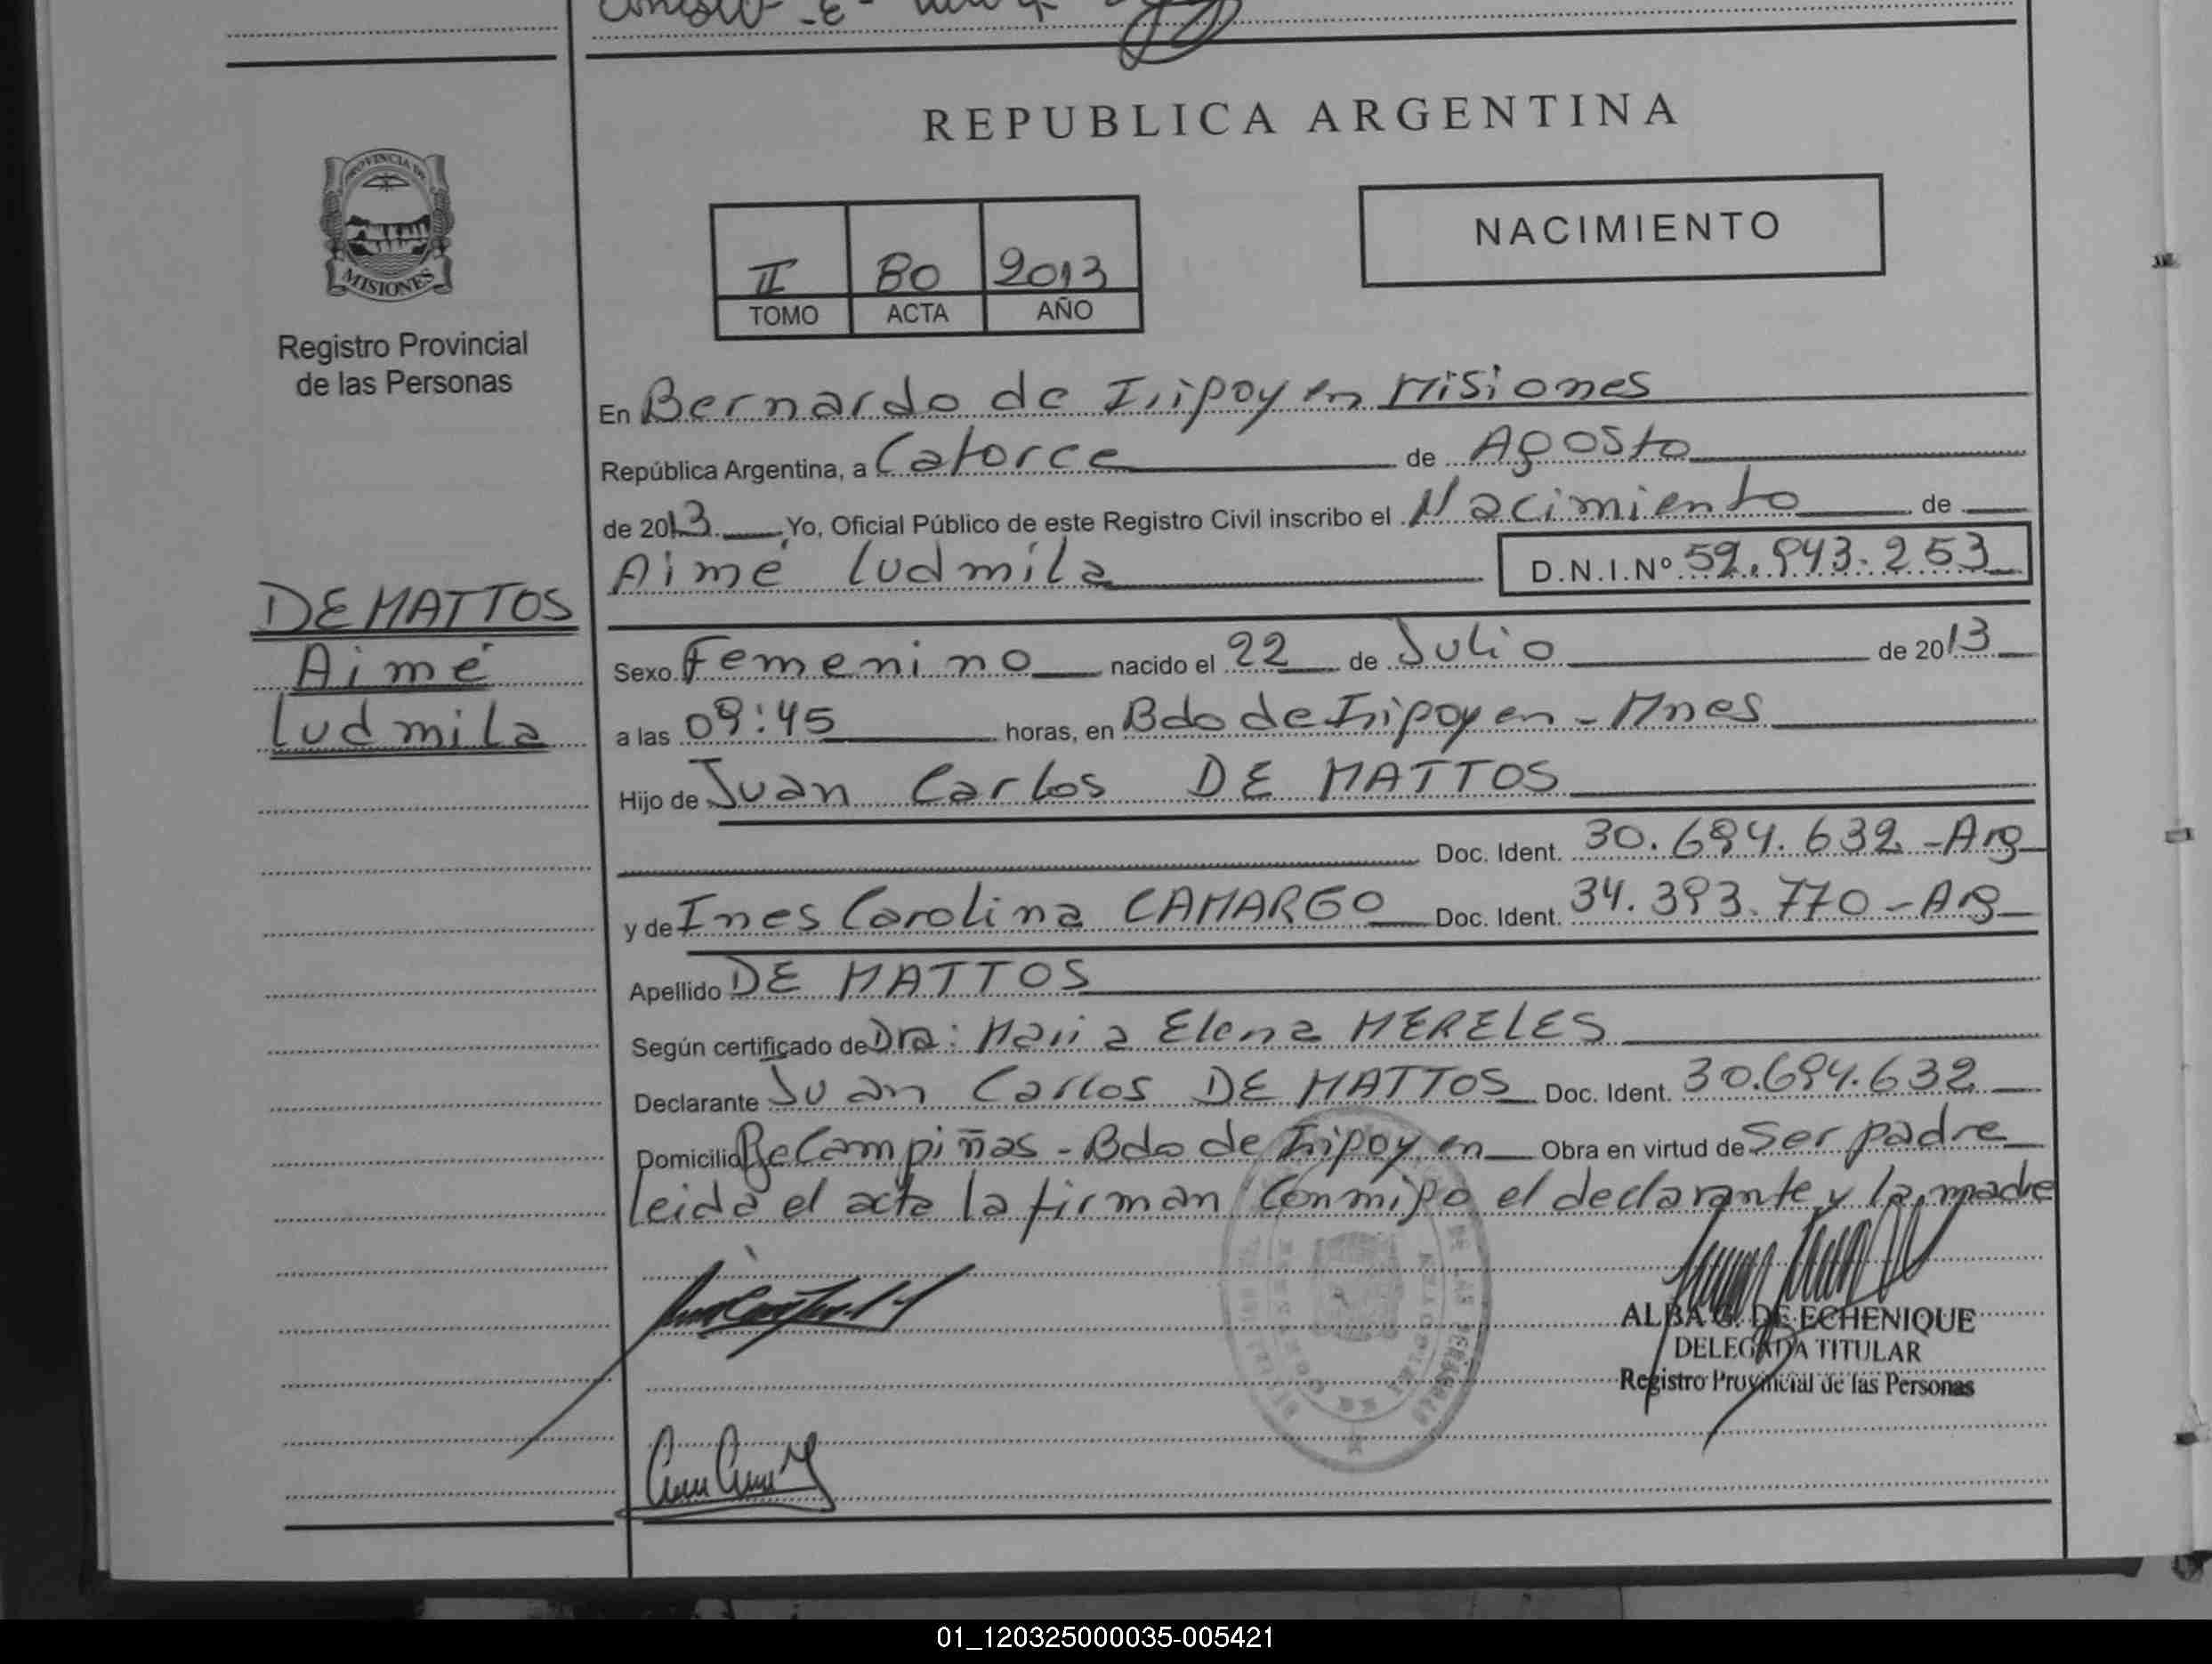 REPUBLICA ARGENTINA
PROVINCIA DE
MISIONES
Registro Provincial
de las Personas
NACIMIENTO
II 80 2013
TOMO ACTA AÑO
En Bernardo de Irigoyen Misiones
República Argentina, a Catorce de Agosto
de 2013 Yo, Oficial Público de este Registro Civil inscribo el Nacimiento de
Aimé Ludmila D.N.I.Nº
DE MATTOS
Aimé
Ludmila
Sexo Femenino nacido el 22 de Julio de 2013
a las 09:45 horas, en Bdo de Irigoyen - Mnes
Hijo de Juan Carlos DE MATTOS
Doc. Ident. 30.694.632 - Arg
y de Ines Carolina CAMARGO Doc. Ident. 34.393.770 - Arg
Apellido DE MATTOS
Según certificado de Dra: Maria Elena MERELES
Declarante Juan Carlos DE MATTOS Doc. Ident. 30.694.632
Domicilio Campiñas - Bdo de Irigoyen Obra en virtud de Ser padre
leida el acta la firman conmigo el declarante y la madre
ALBA G. DE ECHENIQUE
DELEGADA TITULAR
Registro Provincial de las Personas
01_120325000035-005421